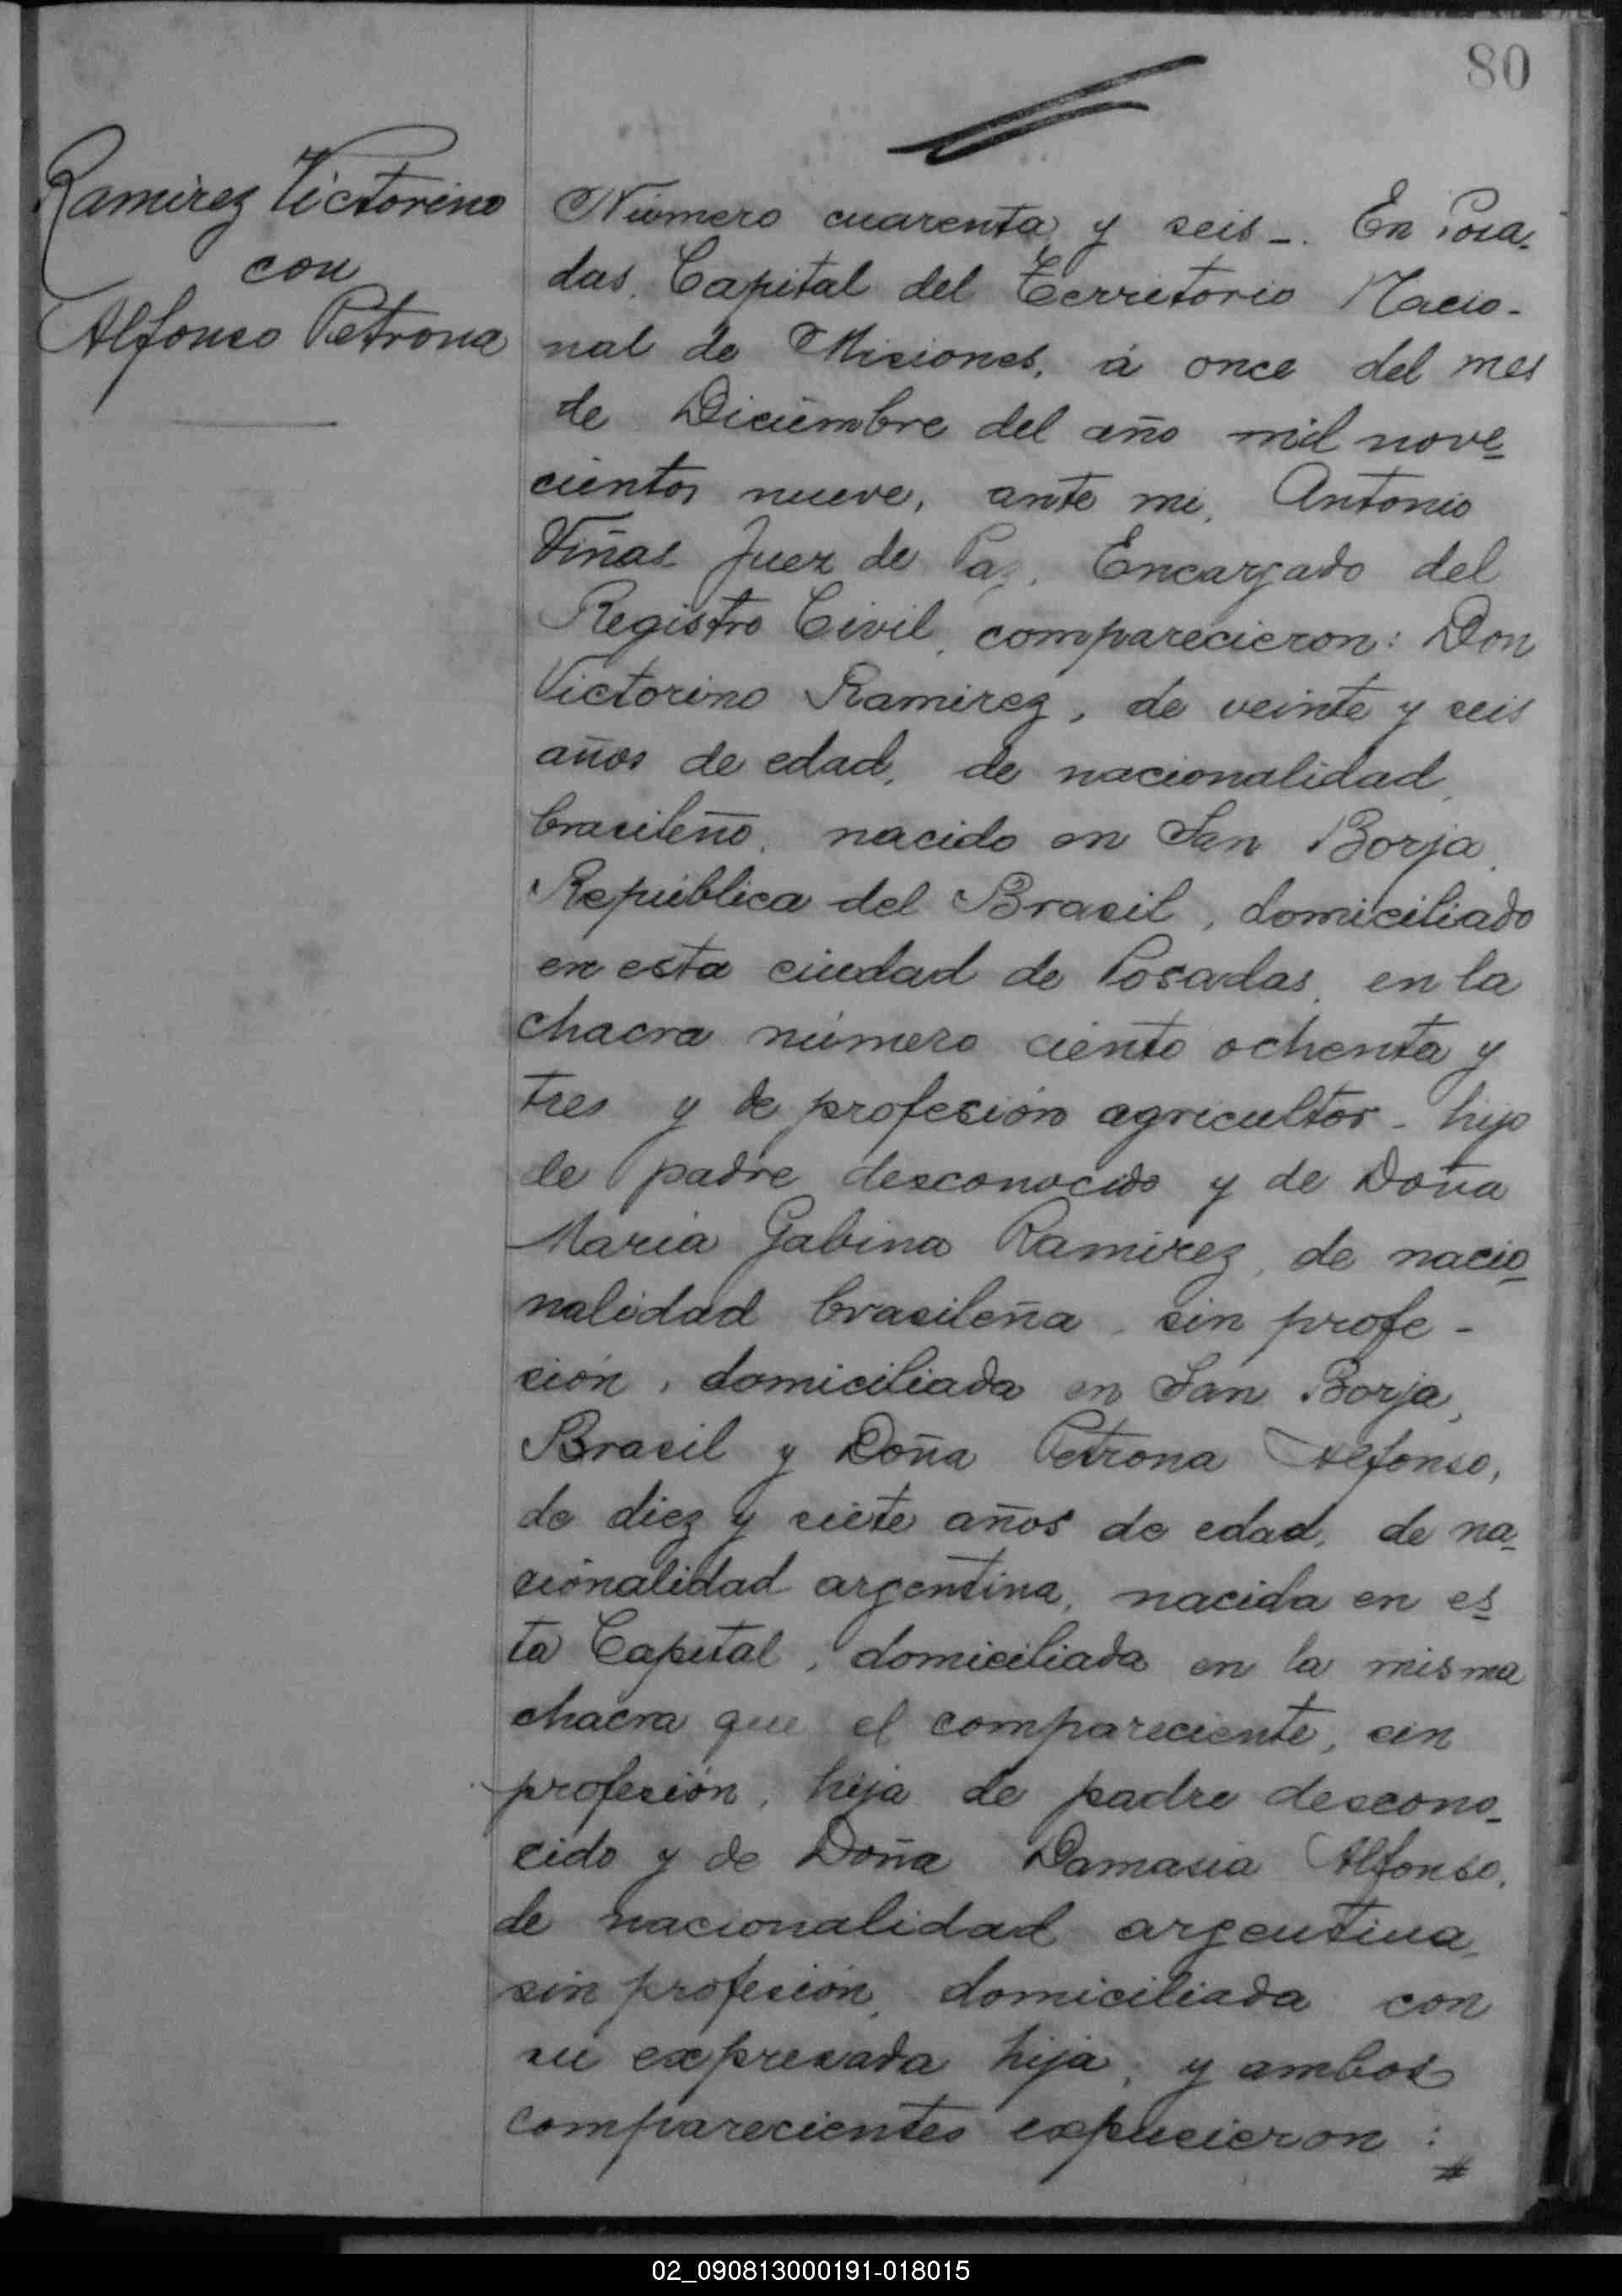 80
Ramirez Victorino
con
Alfonso Petrona
Número cuarenta y seis -. En Posa-
das, Capital del Territorio Nacio-
nal de Misiones, á once del mes
de Diciembre del año mil nove-
cientos nueve, ante mi, Antonio
Viñas Juez de Paz, Encargado del
Registro Civil, comparecieron: Don
Victorino Ramirez, de veinte y seis
años de edad, de nacionalidad
brasileño, nacido en San Borja,
República del Brasil, domiciliado
en esta ciudad de Posadas, en la
chacra número ciento ochenta y
tres y de profesión agricultor - hijo
de padre desconocido y de Doña
Maria Gabina Ramirez, de nacio-
nalidad brasileña, sin profe-
sión, domiciliada en San Borja,
Brasil y Doña Petrona Alfonso,
de diez y siete años de edad, de na-
cionalidad argentina, nacida en es-
ta Capital, domiciliada en la misma
chacra que el compareciente, sin
profesión, hija de padre descono-
cido y de Doña Damasia Alfonso,
de nacionalidad argentina,
sin profesión, domiciliada con
su expresada hija, y ambos
comparecientes expusieron:
02_090813000191-018015